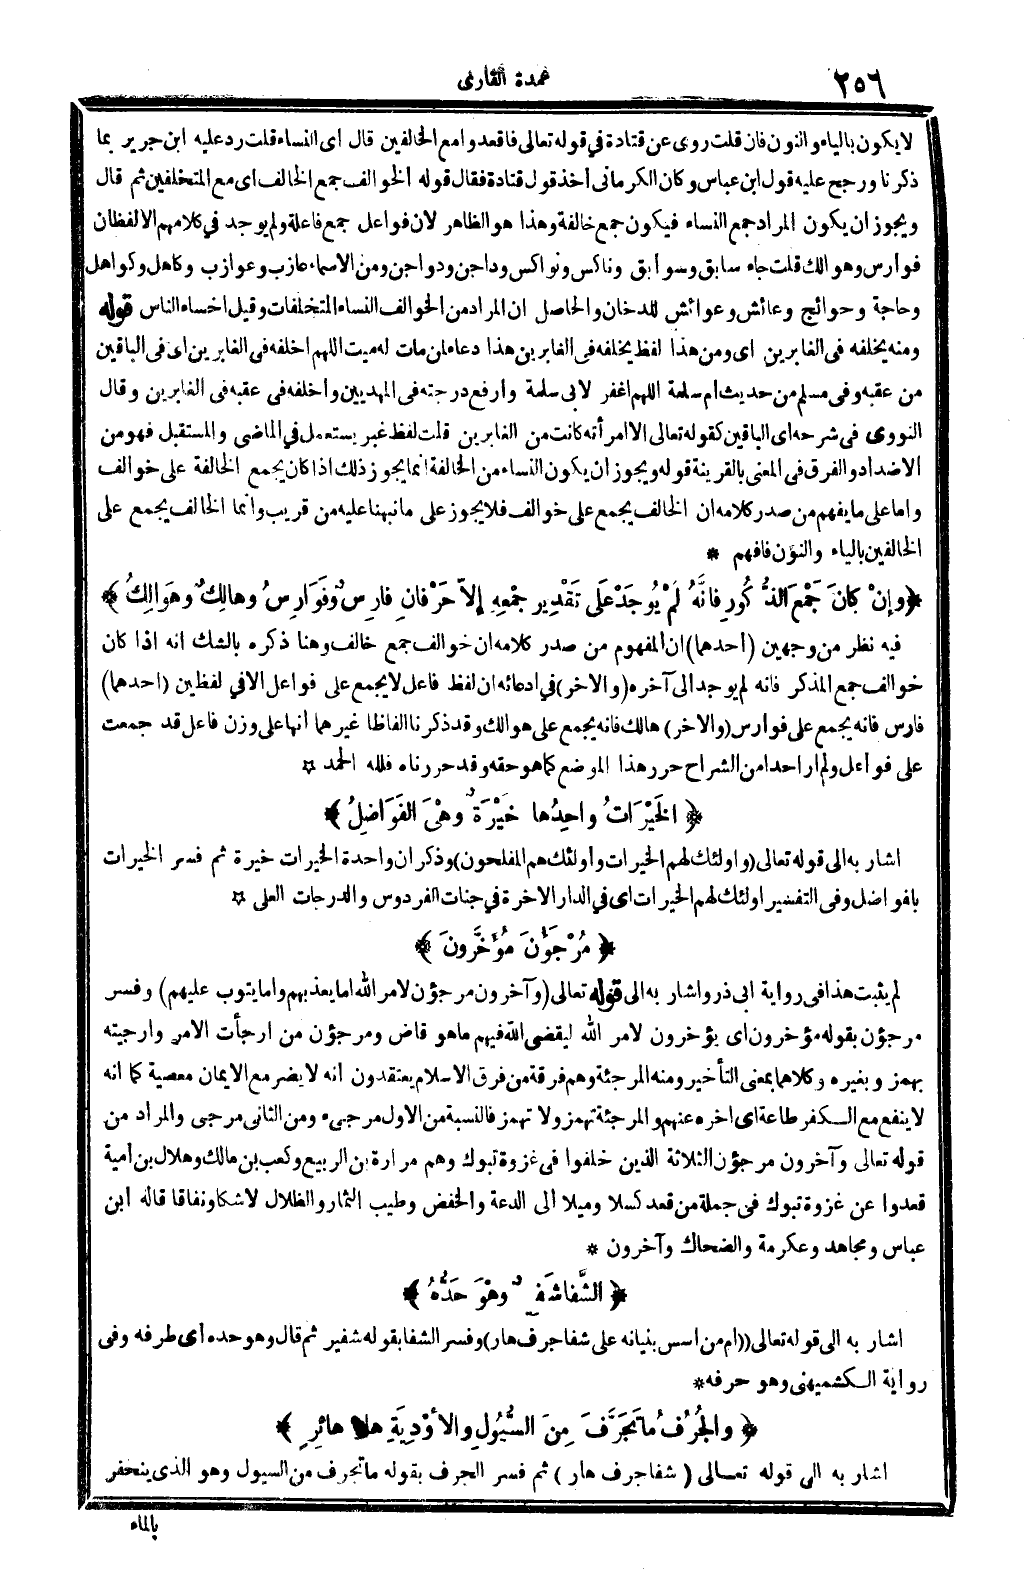 ٢٥٦
عمدة القارى
لا يكون بالياء والنون فان قلت روى عن قتادة في قوله تعالى فاقعدوا مع الخالفين قال اى النساء قلت رد عليه ابن جرير بما
ذكرنا ورجح عليه قول ابن عباس وكان الكرمانى أخذ قول قتادة فقال قوله الخوالف جمع الخالف اى مع المتخلفين ثم قال
ويجوز ان يكون المراد جمع النساء فيكون جمع خالفة وهذا هو الظاهر لان فواعل جمع فاعلة ولم يوجد في كلامهم الا لفظان
فوارس وهوالك قلت جاء سابق وسوابق وناكس ونواكس وداجن ودواجن ومن الاسماء عازب وعوازب وكاهل وكواهل
وحاجة وحوائج وعائش وعوائش للدخان والحاصل ان المراد من الخوالف النساء المتخلفات وقيل اخساء الناس قوله
ومنه يخلفه فى الغابرين اى ومن هذا لفظ يخلفه فى الغابرين هذا دعاء لمن مات له ميت اللهم اخلفه فى الغابرين اى فى الباقين
من عقبه وفى مسلم من حديث ام سلمة اللهم اغفر لابى سلمة وارفع درجته فى المهديين واخلفه فى عقبه فى الغابرين وقال
النووى فى شرحه اى الباقين كقوله تعالى الا امرأته كانت من الغابرين قلت لفظ غبر يستعمل في الماضى والمستقبل فهو من
الاضداد والفرق فى المعنى بالقرينة قوله ويجوز ان يكون النساء من الخالفة انما يجوز ذلك اذا كان يجمع الخالفة على خوالف
واما على ما يفهم من صدر كلامه ان الخالف يجمع على خوالف فلا يجوز على ما نبهنا عليه من قريب وانما الخالف يجمع على
الخالفين بالياء والنون فافهم *
﴿وإنْ كانَ جَمْعَ الذُّكُورِ فإنَّهُ لَمْ يُوجَدْ عَلَى تَقْدِيرِ جَمْعِهِ إلاَّ حَرْفانِ فارِسٌ وفَوَارِسُ وهالِكٌ وهَوَالِكُ﴾
فيه نظر من وجهين (أحدهما) ان المفهوم من صدر كلامه ان خوالف جمع خالف وهنا ذكره بالشك انه اذا كان
خوالف جمع المذكر فانه لم يوجد الى آخره (والاخر) في ادعائه ان لفظ فاعل لا يجمع على فواعل الا في لفظين (احدهما)
فارس فانه يجمع على فوارس (والاخر) هالك فانه يجمع على هوالك وقد ذكرنا الفاظا غيرهما أنها على وزن فاعل قد جمعت
على فواعل ولم ار احدا من الشراح حرر هذا الموضع كما هو حقه وقد حررناه فلله الحمد *
﴿الخَيْرَاتُ واحِدُها خَيْرَةٌ وهْىَ الفَوَاضِلُ﴾
اشار به الى قوله تعالى (واولئك لهم الخيرات وأولئك هم المفلحون) وذكر ان واحدة الخيرات خيرة ثم فسر الخيرات
بالفواضل وفى التفسير اولئك لهم الخيرات اى في الدار الاخرة في جنات الفردوس والدرجات العلى *
﴿مُرْجَؤُنَ مُؤَخَّرُونَ﴾
لم يثبت هذا فى رواية ابى ذر واشار به الى قوله تعالى (وآخرون مرجؤن لامر الله اما يعذبهم واما يتوب عليهم) وفسر
مرجؤن بقوله مؤخرون اى يؤخرون لامر الله ليقضى الله فيهم ما هو قاض ومرجؤن من ارجأت الامر وارجيته
بهمز وبغيره وكلاهما بمعنى التأخير ومنه المرجئة وهم فرقة من فرق الاسلام يعتقدون أنه لا يضر مع الايمان معصية كما انه
لا ينفع مع الكفر طاعة اى اخره عنهم والمرجئة تهمز ولا تهمز فالنسبة من الاول مرجىء ومن الثانى مرجى والمراد من
قوله تعالى وآخرون مرجؤن الثلاثة الذين خلفوا فى غزوة تبوك وهم مرارة بن الربيع وكعب بن مالك وهلال بن أمية
قعدوا عن غزوة تبوك فى جملة من قعد كسلا وميلا الى الدعة والخفض وطيب الثمار والظلال لا شكا ونفاقا قاله ابن
عباس ومجاهد وعكرمة والضحاك وآخرون *
﴿الشَّفا شَفِيرٌ وهْوَ حَدُّهُ﴾
اشار به الى قوله تعالى (ام من اسس بنيانه على شفا جرف هار) وفسر الشفا بقوله شفير ثم قال وهو حده أى طرفه وفى
رواية الكشميهنى وهو حرفه *
﴿والجُرُفُ ما تَجَرَّفَ مِنَ السُّيُولِ والأوْدِيَةِ هارٍ هائِرٍ﴾
اشار به الى قوله تعالى (شفا جرف هار) ثم فسر الجرف بقوله ما تجرف من السيول وهو الذى ينحفر
بالماء